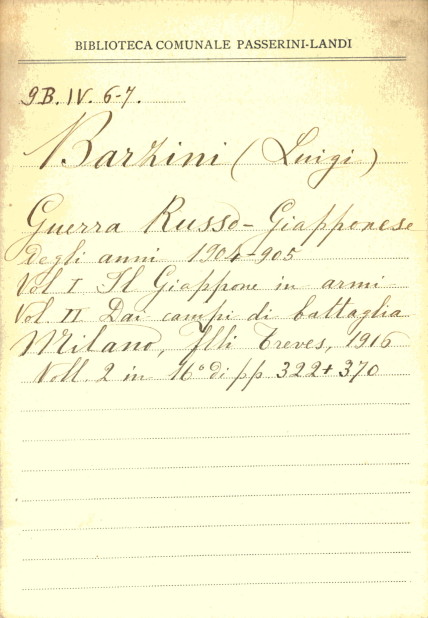 BIBLIOTECA COMUNALE PASSERINI-LANDI
9B. IV. 6-7.
Barzini (Luigi)
Guerra Russo-Giapponese
degli anni 1904-905
Vol I Il Giappone in armi
Vol. II Dai campi di battaglia
Milano, Flli Treves, 1916
Voll. 2 in 16° di pp 322+370